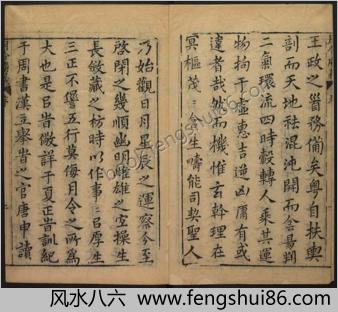 王政之首務備矣粵自扶輿
剖而天地祛混沌開而含昜朙
二氣環流四時轂轉人乘其運
物拘于虛悬吉逆凶厲有或
違者哉然而機惟玄幹理在
冥樞茂三令生疇能司契聖人
乃始觀日月星辰之運察今至
啓閉之幾順幽明雌雄之宜操生
長斂藏之枋時以作事三㠯厚生
三正不𡐛五行莫侮月令之所爲
大也是㠯皆微詳于夏正旹訓紀
于周書漢立舉旹之官唐申讀
风水八六 www.fengshui86.com